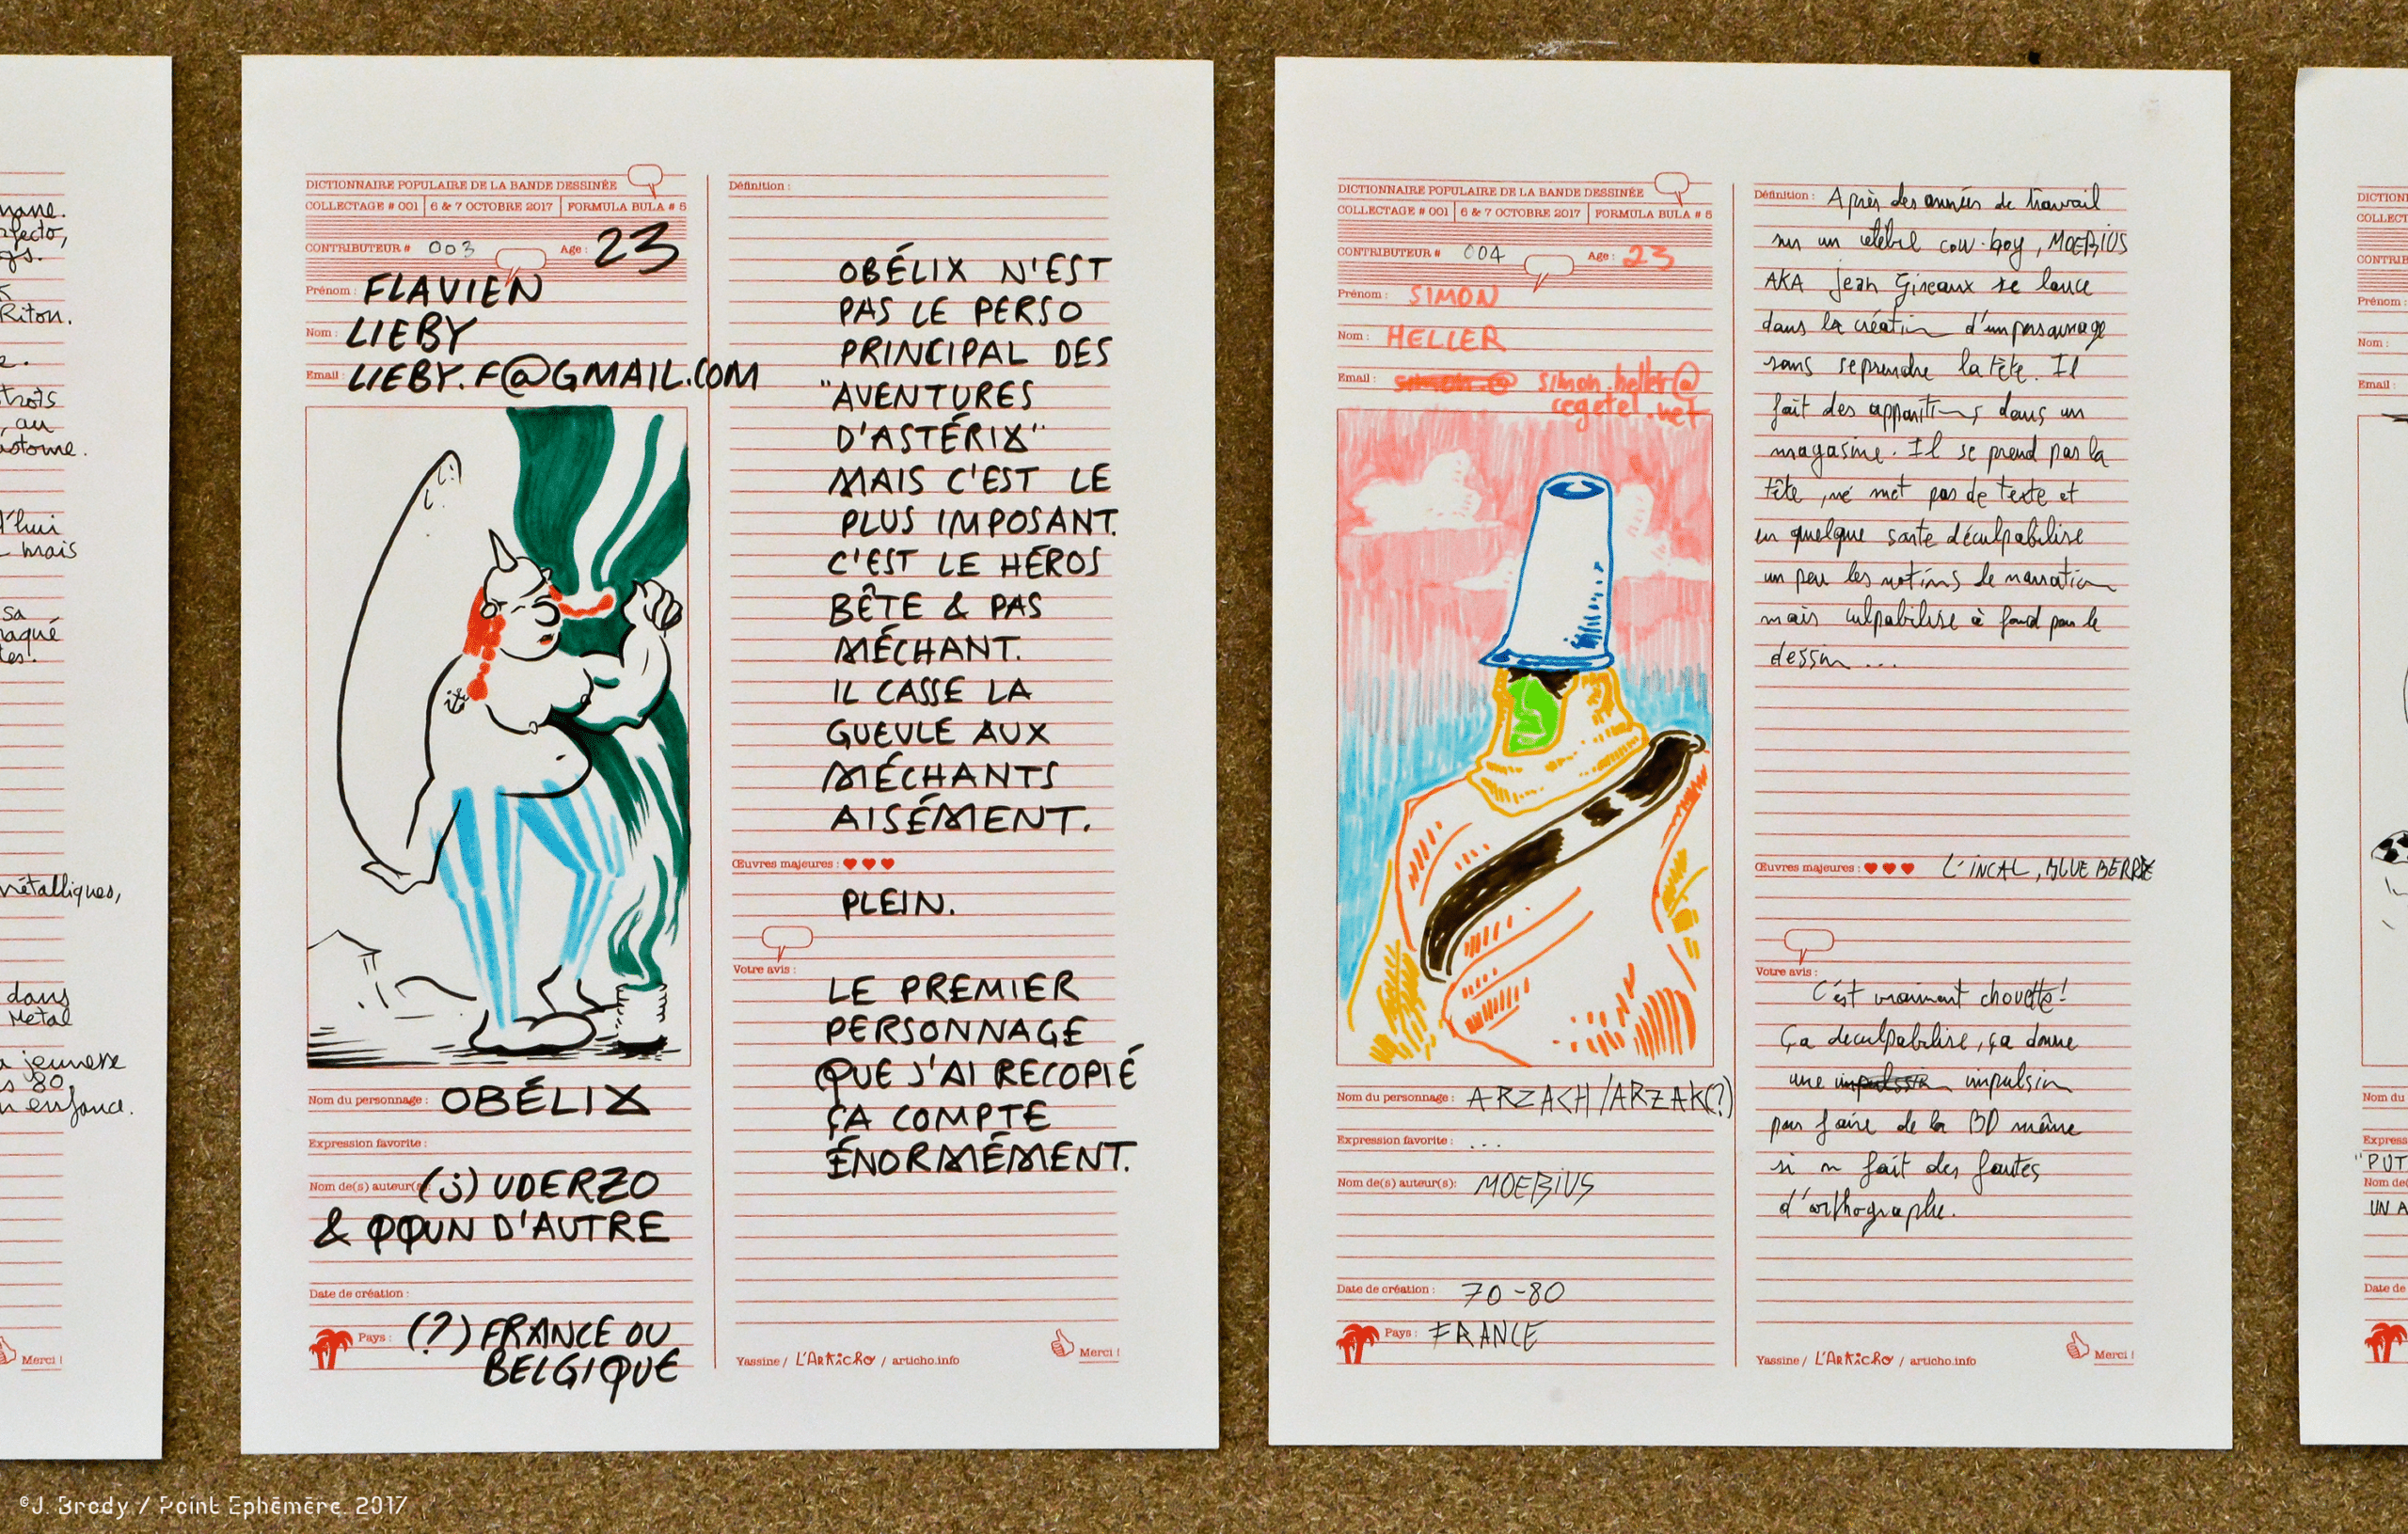 mais
Riton.
métalliques,
dans
Metal
jeunesse
80,
enfance.
Merci !
DICTIONNAIRE POPULAIRE DE LA BANDE DESSINÉE
COLLECTAGE # 001 | 6 & 7 OCTOBRE 2017 | FORMULA BULA # 5
CONTRIBUTEUR # 003 Age : 23
Prénom : FLAVIEN
Nom : LIEBY
Email : LIEBY.F@GMAIL.COM
Nom du personnage : OBÉLIX
Expression favorite :
Nom de(s) auteur(s) : (j) UDERZO
& QQUN D'AUTRE
Date de création :
Pays : (?) FRANCE OU
BELGIQUE
Définition :
OBÉLIX N'EST
PAS LE PERSO
PRINCIPAL DES
"AVENTURES
D'ASTÉRIX"
MAIS C'EST LE
PLUS IMPOSANT.
C'EST LE HÉROS
BÊTE & PAS
MÉCHANT.
IL CASSE LA
GUEULE AUX
MÉCHANTS
AISÉMENT.
Œuvres majeures : ♥♥♥
PLEIN.
Votre avis :
LE PREMIER
PERSONNAGE
QUE J'AI RECOPIÉ
ÇA COMPTE
ÉNORMÉMENT.
Yassine / L'ARTiCHO / articho.info
Merci !
DICTIONNAIRE POPULAIRE DE LA BANDE DESSINÉE
COLLECTAGE # 001 | 6 & 7 OCTOBRE 2017 | FORMULA BULA # 5
CONTRIBUTEUR # 004 Age : 23
Prénom : SIMON
Nom : HELLER
Email : simon.heller@
cegetel.net
Nom du personnage : ARZACH/ARZAK(?)
Expression favorite : ...
Nom de(s) auteur(s): MOEBIUS
Date de création : 70-80
Pays : FRANCE
Définition : Après des années de travail
sur un célèbre cow-boy, MOEBIUS
AKA Jean Gireaux se lance
dans la création d'un personnage
sans se prendre la tête. Il
fait des apparitions dans un
magasine. Il se prend pas la
tête, né met pas de texte et
en quelque sorte déculpabilise
un peu les notions de narration
mais culpabilise à fond pour le
dessin ...
Œuvres majeures : ♥♥♥ L'INCAL, BLUEBERRY
Votre avis :
C'est vraiment chouette!
Ça déculpabilise, ça donne
une impulsion impulsion
pour faire de la BD même
si on fait des fautes
d'orthographe.
Yassine / L'ARTiCHO / articho.info
Merci !
Prénom :
Nom :
Email :
Nom du
Date de
©J. Brody / Point Ephémère. 2017